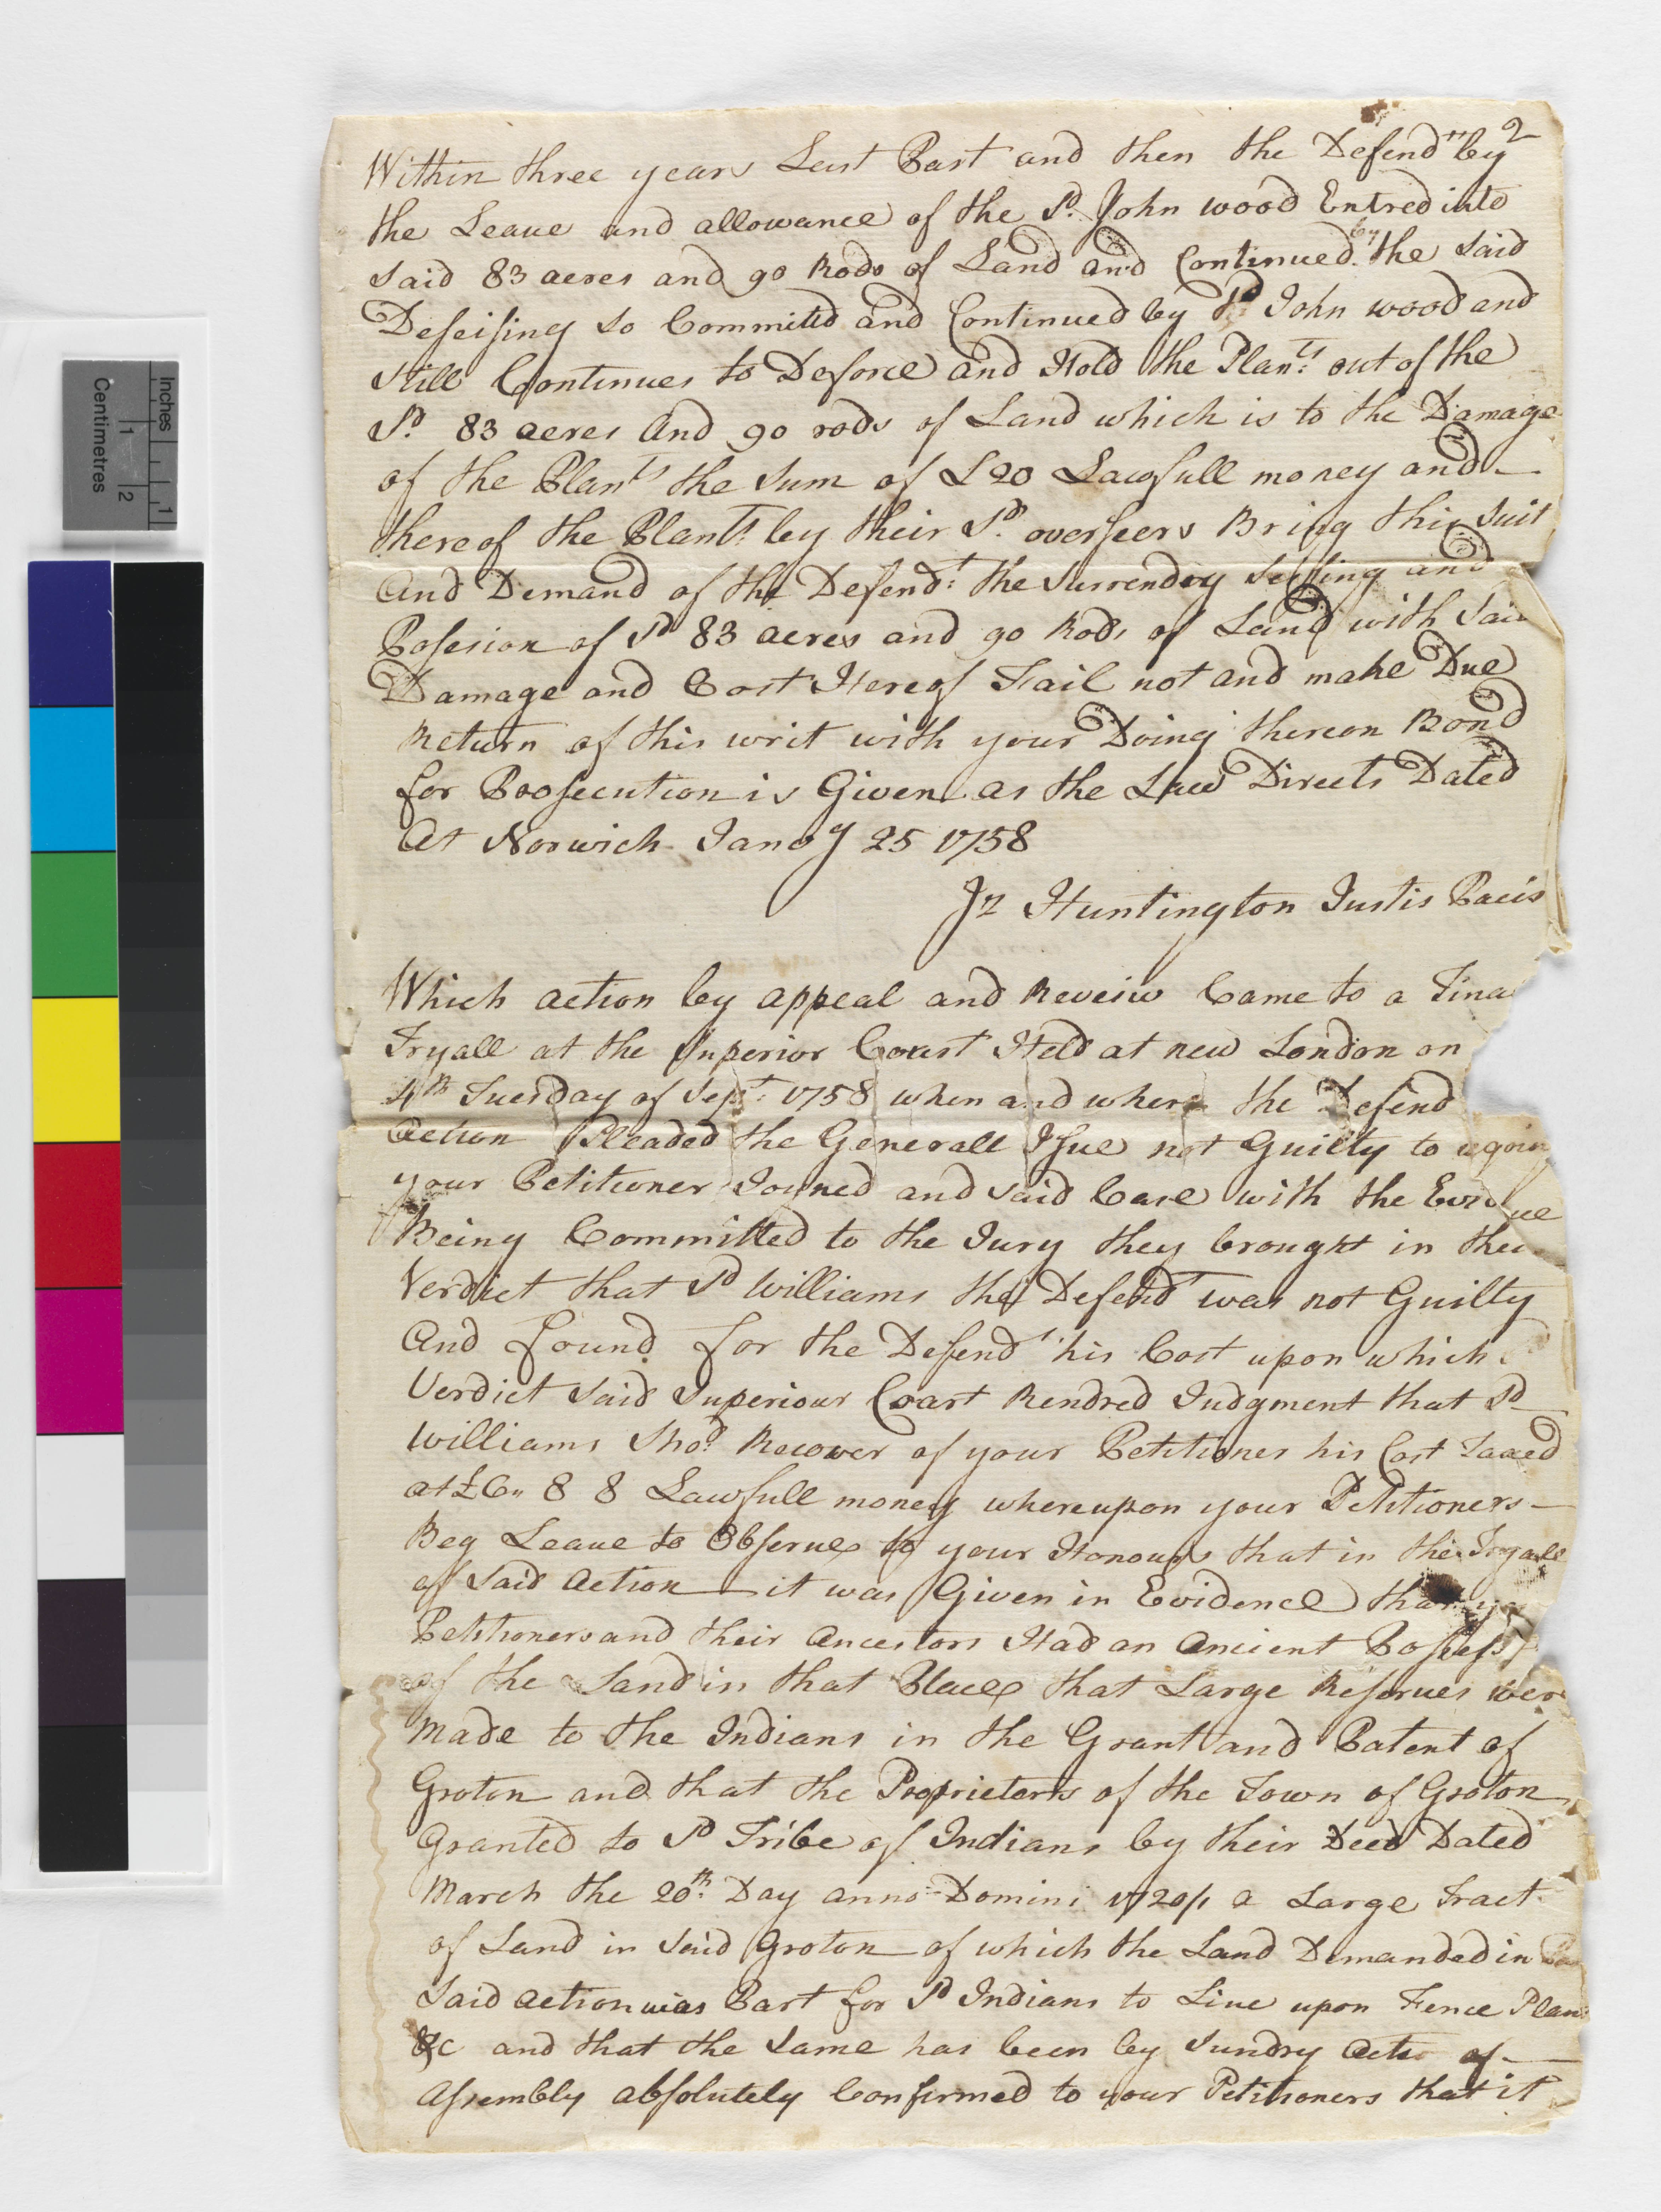 2
Within three years Last Past and then the Defend.t by
the Leave and allowance of the Sd. John wood Entred into
Said 83 acres and 90 Rods of Land and Continued by the Said
Deseising so Committd and Continued by Sd. John wood and
still Continues to Deforce and Hold the Plants. out of the
Sd. 83 acres And 90 rods of Land which is to the Damage
of the Plants the Sum of £20 Lawfull money and
thereof the Plants. by their Sd. overseers Bring this Suit
And Demand of the Defendt: the Surrendry Seising and
Possesion of Sd 83 acres and 90 Rods of Land with Said
Damage and Cost Hereof Fail not and make Due
Return of this writ with your Doing thereon Bond
for Prosecution is Given as the Law Directs Dated
At Norwich Janry 25 1758
Jz Huntington Justis Pacis
Which action by appeal and Reveiw Came to a Fina
Tryall at the Superior Court Held at new London on
4th Tuesday of Sept. 1758 when and where the Defend
Action Pleaded the Generall Issue not Guilty to
your Petitioner Joyned and said Case with the
Being Committed to the Jury they brought in their
Verdict that Sd Williams the Defendt was not Guilty
And found for the Defendt his Cost upon which
Verdict Said Superiour Court Rendred Judgment that Sd
Williams Shod. Recover of your Petitioner his Cost Taxed
at £6,, 8 8 Lawfull money whereupon your Petitioners
Beg Leave to Observe to your Honours that in the Tryall
of Said Action it was Given in Evidence that
Petitioners and their Ancestors Had an Ancient
of the Land in that Place that Large Reserves were
Made to the Indians in the Grant and Patent of
Groton and that the Proprietors of the Town of Groton
Granted to Sd Tribe of Indians by their Deed Dated
March the 20th. Day anno Domini 1720/1 a Large Tract
of Land in Said Groton of which the Land Demanded in
Said action was Part for Sd Indians to Live upon Fence Plant
&c and that the Same has been by Sundry Acts of
Assembly absolutely Confirmed to your Petitioners that it
Inches
1
Centimetres
1
2